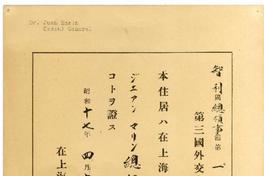 Dr. Juan Marin
Consul General
智利國總領事館第一
第三國外交
本住居ハ在上海
ジュアン マリン總
コトヲ證ス
昭和十七年四月
在上海